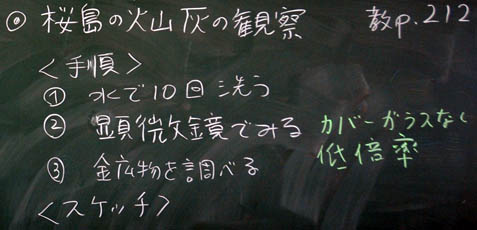 ◎ 桜島の火山灰の観察 教p.212
<手順>
① 水で10回洗う
② 顕微鏡でみる カバーガラスなく
低倍率
③ 鉱物を調べる
<スケッチ>